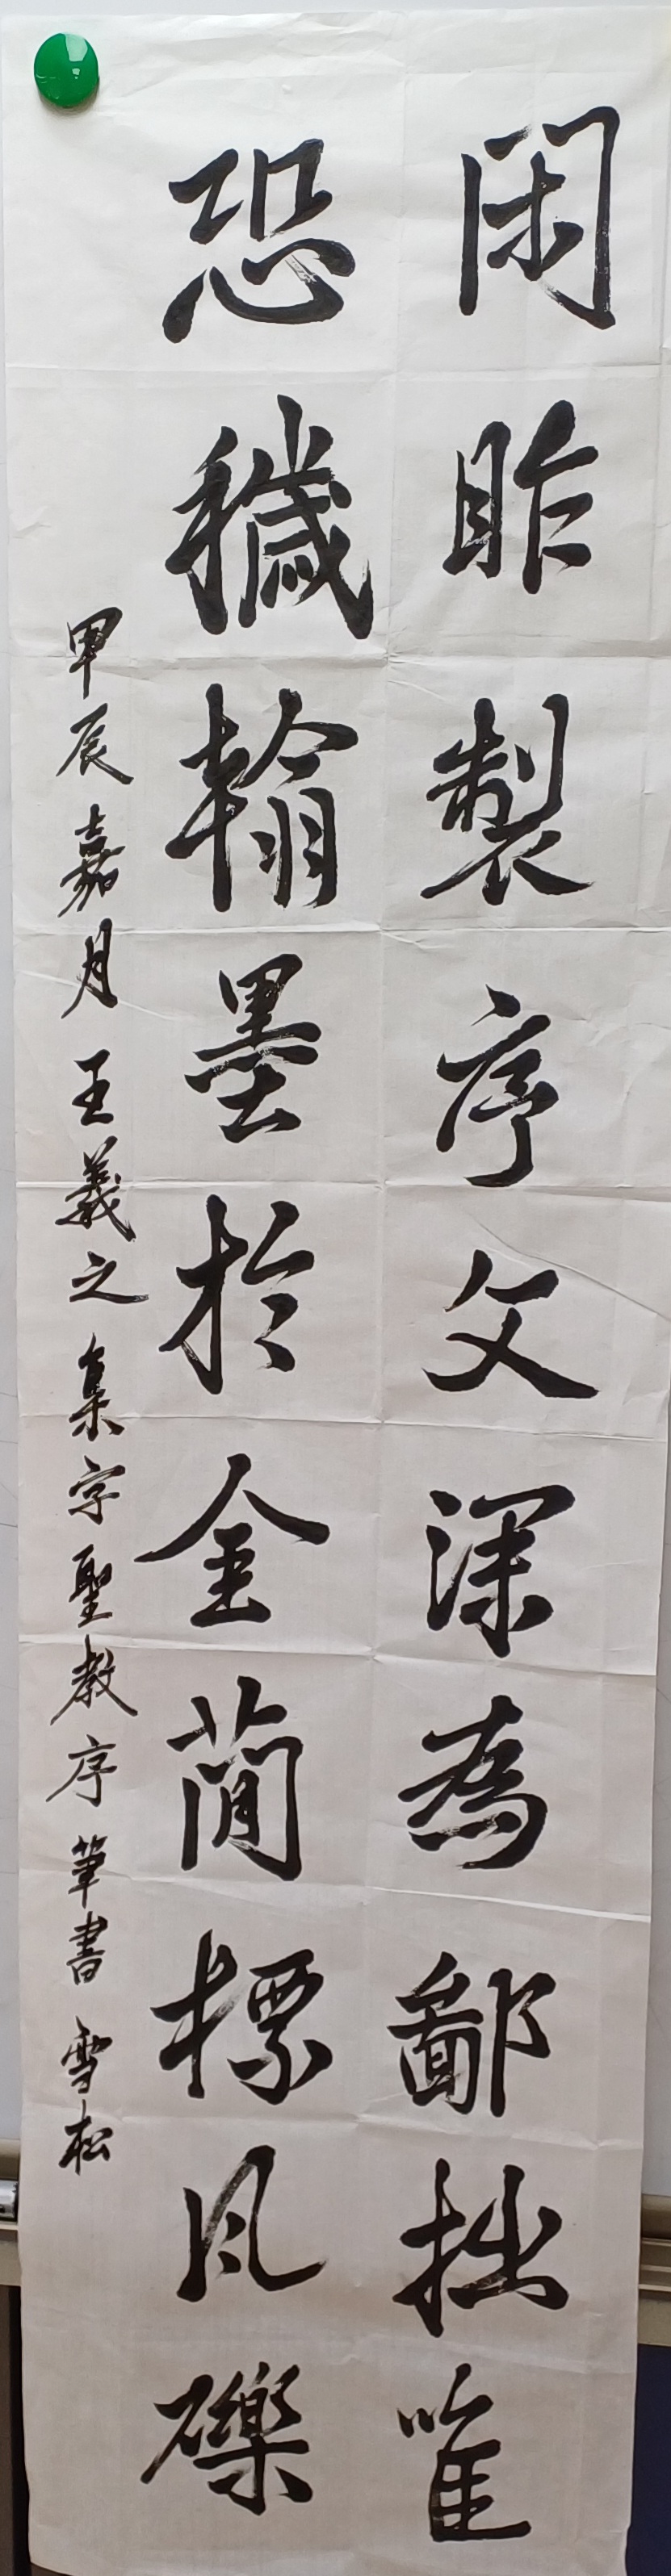 閑昨製序文深為鄙拙唯
恐穢翰墨於金簡標瓦礫
甲辰嘉月王羲之集字聖教序筆書雪松